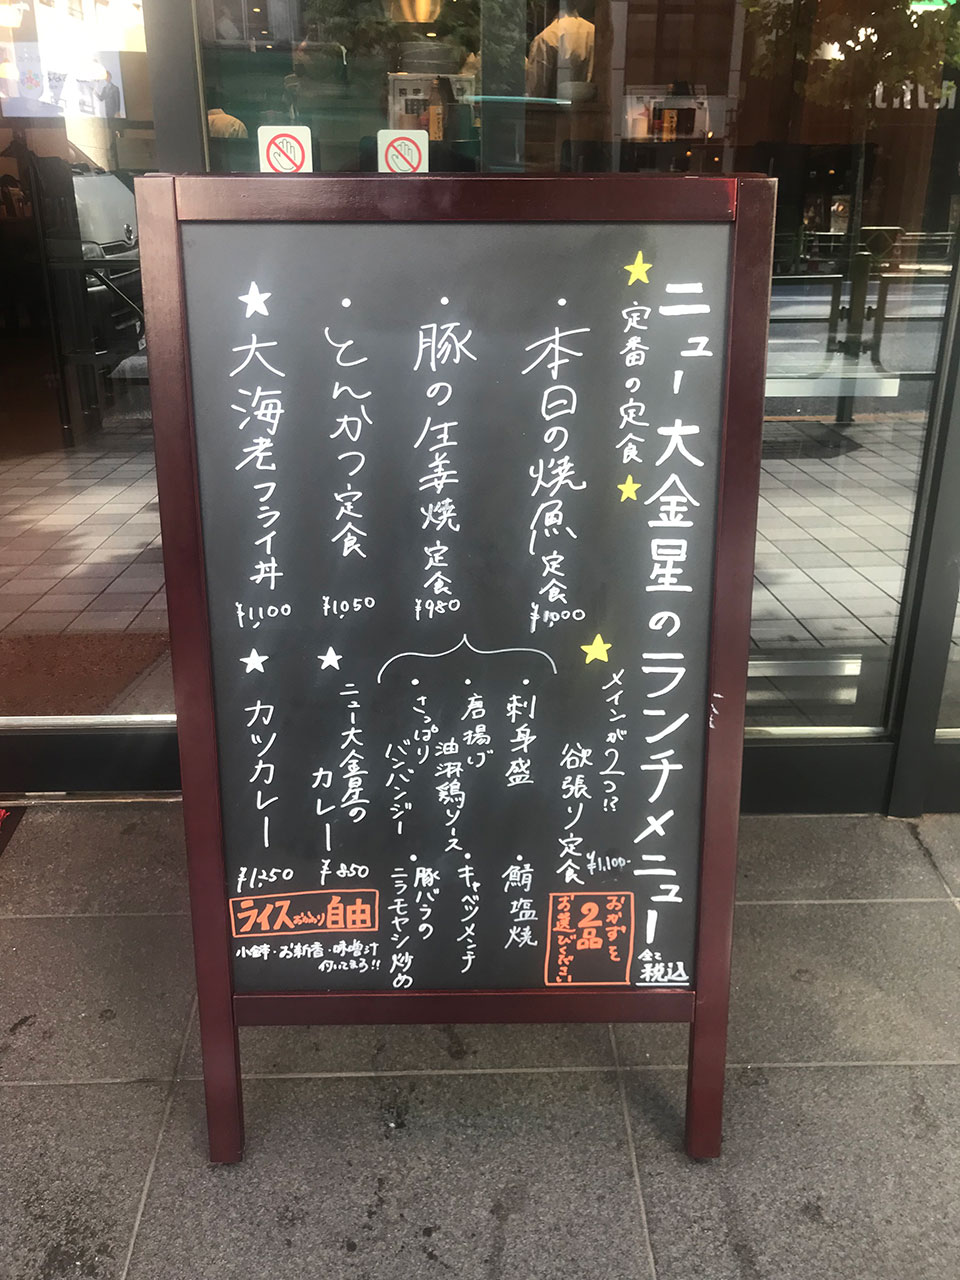 ニュー大金星のランチメニュー
全て税込
★定番の定食★
・本日の焼魚定食
¥1,000
・豚の生姜焼定食
¥980
・とんかつ定食
¥1,050
★大海老フライ丼
¥1,100
★メインが2つ!?
欲張り定食
¥1,100-
おかずを
2品
お選びください
・刺身盛
・鯖塩焼
・唐揚げ
油淋鶏ソース
・キャベツメンチ
・さっぱり
バンバンジー
・豚バラの
ニラモヤシ炒め
★ニュー大金星の
カレー
¥850
★カツカレー
¥1,250
ライスおかわり自由
小鉢・お新香・味噌汁
付いてます!!